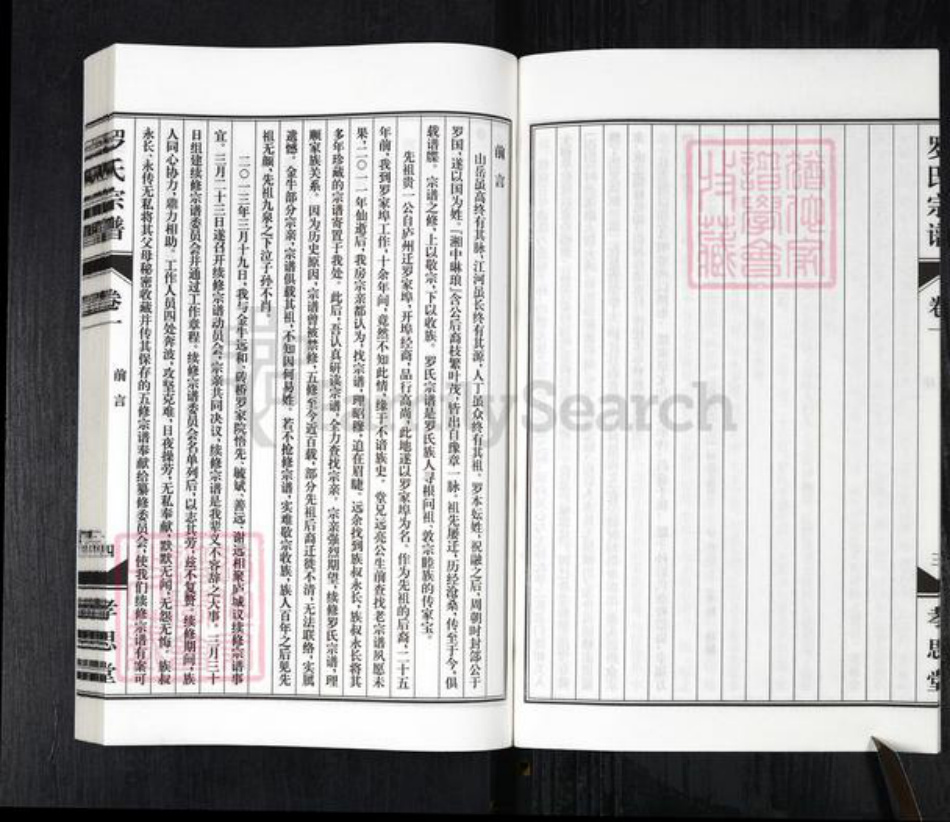 罗氏宗谱
卷一
三
孝思堂
前言
山岳虽高终有其脉，江河虽长终有其源，人丁虽众终有其祖。罗本妘姓，祝融之后，周朝时封部公于
罗国，遂以国为姓。『湘中琳琅』含公后裔枝繁叶茂，皆出自豫章一脉。祖先屡迁，历经沧桑，传至于今，俱
载谱牒。宗谱之修，上以敬宗，下以收族。罗氏宗谱是罗氏族人寻根问祖、敦宗睦族的传家宝。
先祖贵一公自庐州迁罗家埠，开埠经商，品行高尚，此地遂以罗家埠为名。作为先祖的后裔，二十五
年前，我到罗家埠工作，十余年间，竟然不知此情，缘于不谙族史。堂兄远亮公生前查找老宗谱夙愿未
果，二〇一一年仙逝后，我房宗亲都认为，找宗谱，理昭穆，迫在眉睫。远余找到族叔永长，族叔永长将其
多年珍藏的宗谱寄置于我处。此后，吾认真研读宗谱，全力查找宗亲，宗亲强烈期望，续修罗氏宗谱，理
顺家族关系。因为历史原因，宗谱曾被禁修，五修至今近百载，部分先祖后裔迁徙不清，无法联络，实属
遗憾。金牛部分宗亲，宗谱俱载其祖，不知因何易姓。若不抢修宗谱，实难敬宗收族，族人百年之后见先
祖无颜，先祖九泉之下泣子孙不肖。
二〇一三年三月十九日，我与金牛远和、砖桥罗家院悟先、毓斌、善远、谢远相聚庐城议续修宗谱事
宜。三月二十三日遂召开续修宗谱动员会，宗亲共同决议，续修宗谱是我辈义不容辞之大事。三月三十
日组建续修宗谱委员会并通过工作章程。续修宗谱委员会名单列后，以志其劳，兹不复赘。续修期间，族
人同心协力，鼎力相助。工作人员四处奔波，攻坚克难，日夜操劳，无私奉献，默默无闻，无怨无悔。族叔
永长、永传无私将其父母秘密收藏并传其保存的五修宗谱奉献给纂修委员会，使我们续修宗谱有案可
罗氏宗谱
卷一
前言
四
孝思堂
FamilySearch